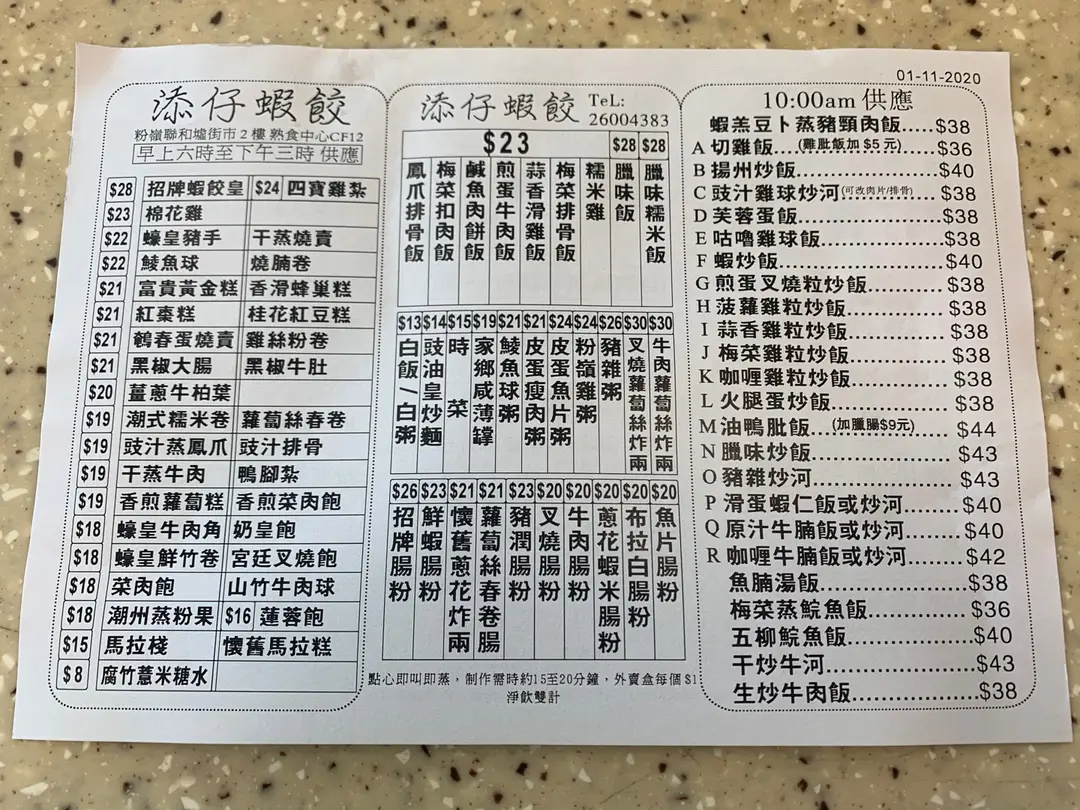 01-11-2020
添仔蝦餃
粉嶺聯和墟街市2樓 熟食中心CF12
早上六時至下午三時 供應
$28 招牌蝦餃皇 $24 四寶雞紮
$23 棉花雞
$22 蠔皇豬手 干蒸燒賣
$22 鯪魚球 燒腩卷
$21 富貴黃金糕 香滑蜂巢糕
$21 紅棗糕 桂花紅豆糕
$21 鵪春蛋燒賣 雞絲粉卷
$21 黑椒大腸 黑椒牛肚
$20 薑蔥牛柏葉
$19 潮式糯米卷 蘿蔔絲春卷
$19 豉汁蒸鳳爪 豉汁排骨
$19 干蒸牛肉 鴨腳紮
$19 香煎蘿蔔糕 香煎菜肉飽
$18 蠔皇牛肉角 奶皇飽
$18 蠔皇鮮竹卷 宮廷叉燒飽
$18 菜肉飽 山竹牛肉球
$18 潮州蒸粉果 $16 蓮蓉飽
$15 馬拉棧 懷舊馬拉糕
$8 腐竹薏米糖水
添仔蝦餃 TeL:
26004383
$23 $28 $28
鳳爪排骨飯
梅菜扣肉飯
鹹魚肉餅飯
煎蛋牛肉飯
蒜香滑雞飯
梅菜排骨飯
糯米雞
臘味飯
臘味糯米飯
$13 白飯/白粥
$14 豉油皇炒麵
$15 時菜
$19 家鄉咸薄罉
$21 鯪魚球粥
$21 皮蛋瘦肉粥
$24 皮蛋魚片粥
$24 粉嶺雞粥
$26 豬雜粥
$30 叉燒蘿蔔絲炸兩
$30 牛肉蘿蔔絲炸兩
$26 招牌腸粉
$23 鮮蝦腸粉
$21 懷舊蔥花炸兩
$21 蘿蔔絲春卷腸
$23 豬潤腸粉
$20 叉燒腸粉
$20 牛肉腸粉
$20 蔥花蝦米腸粉
$20 布拉白腸粉
$20 魚片腸粉
點心即叫即蒸，制作需時約15至20分鐘，外賣盒每個 $1
淨飲雙計
10:00am 供應
蝦羔豆卜蒸豬頸肉飯.....$38
A 切雞飯....(雞肶飯加 $5 元)......$36
B 揚州炒飯....................$40
C 豉汁雞球炒河(可改肉片/排骨)...$38
D 芙蓉蛋飯....................$38
E 咕嚕雞球飯..................$38
F 蝦炒飯......................$40
G 煎蛋叉燒粒炒飯............$38
H 菠蘿雞粒炒飯..............$38
I 蒜香雞粒炒飯..............$38
J 梅菜雞粒炒飯..............$38
K 咖喱雞粒炒飯..............$38
L 火腿蛋炒飯................$38
M 油鴨肶飯...(加臘腸$9元)....$44
N 臘味炒飯..................$43
O 豬雜炒河..................$43
P 滑蛋蝦仁飯或炒河.......$40
Q 原汁牛腩飯或炒河.......$40
R 咖喱牛腩飯或炒河.......$42
魚腩湯飯....................$38
梅菜蒸鯇魚飯..............$36
五柳鯇魚飯................$40
干炒牛河....................$43
生炒牛肉飯................$38